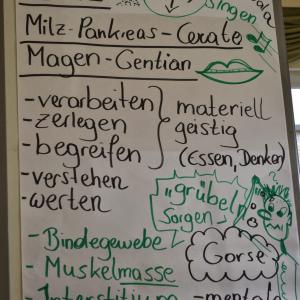 singen
Milz-Pankreas-Cerato
Magen-Gentian
-verarbeiten
-zerlegen
-begreifen
-verstehen
-werten
materiell
geistig
(Essen, Denken)
"grübel
Sorgen"
-Bindegewebe
-Muskelmasse
Gorse
-Interstitium
-mental